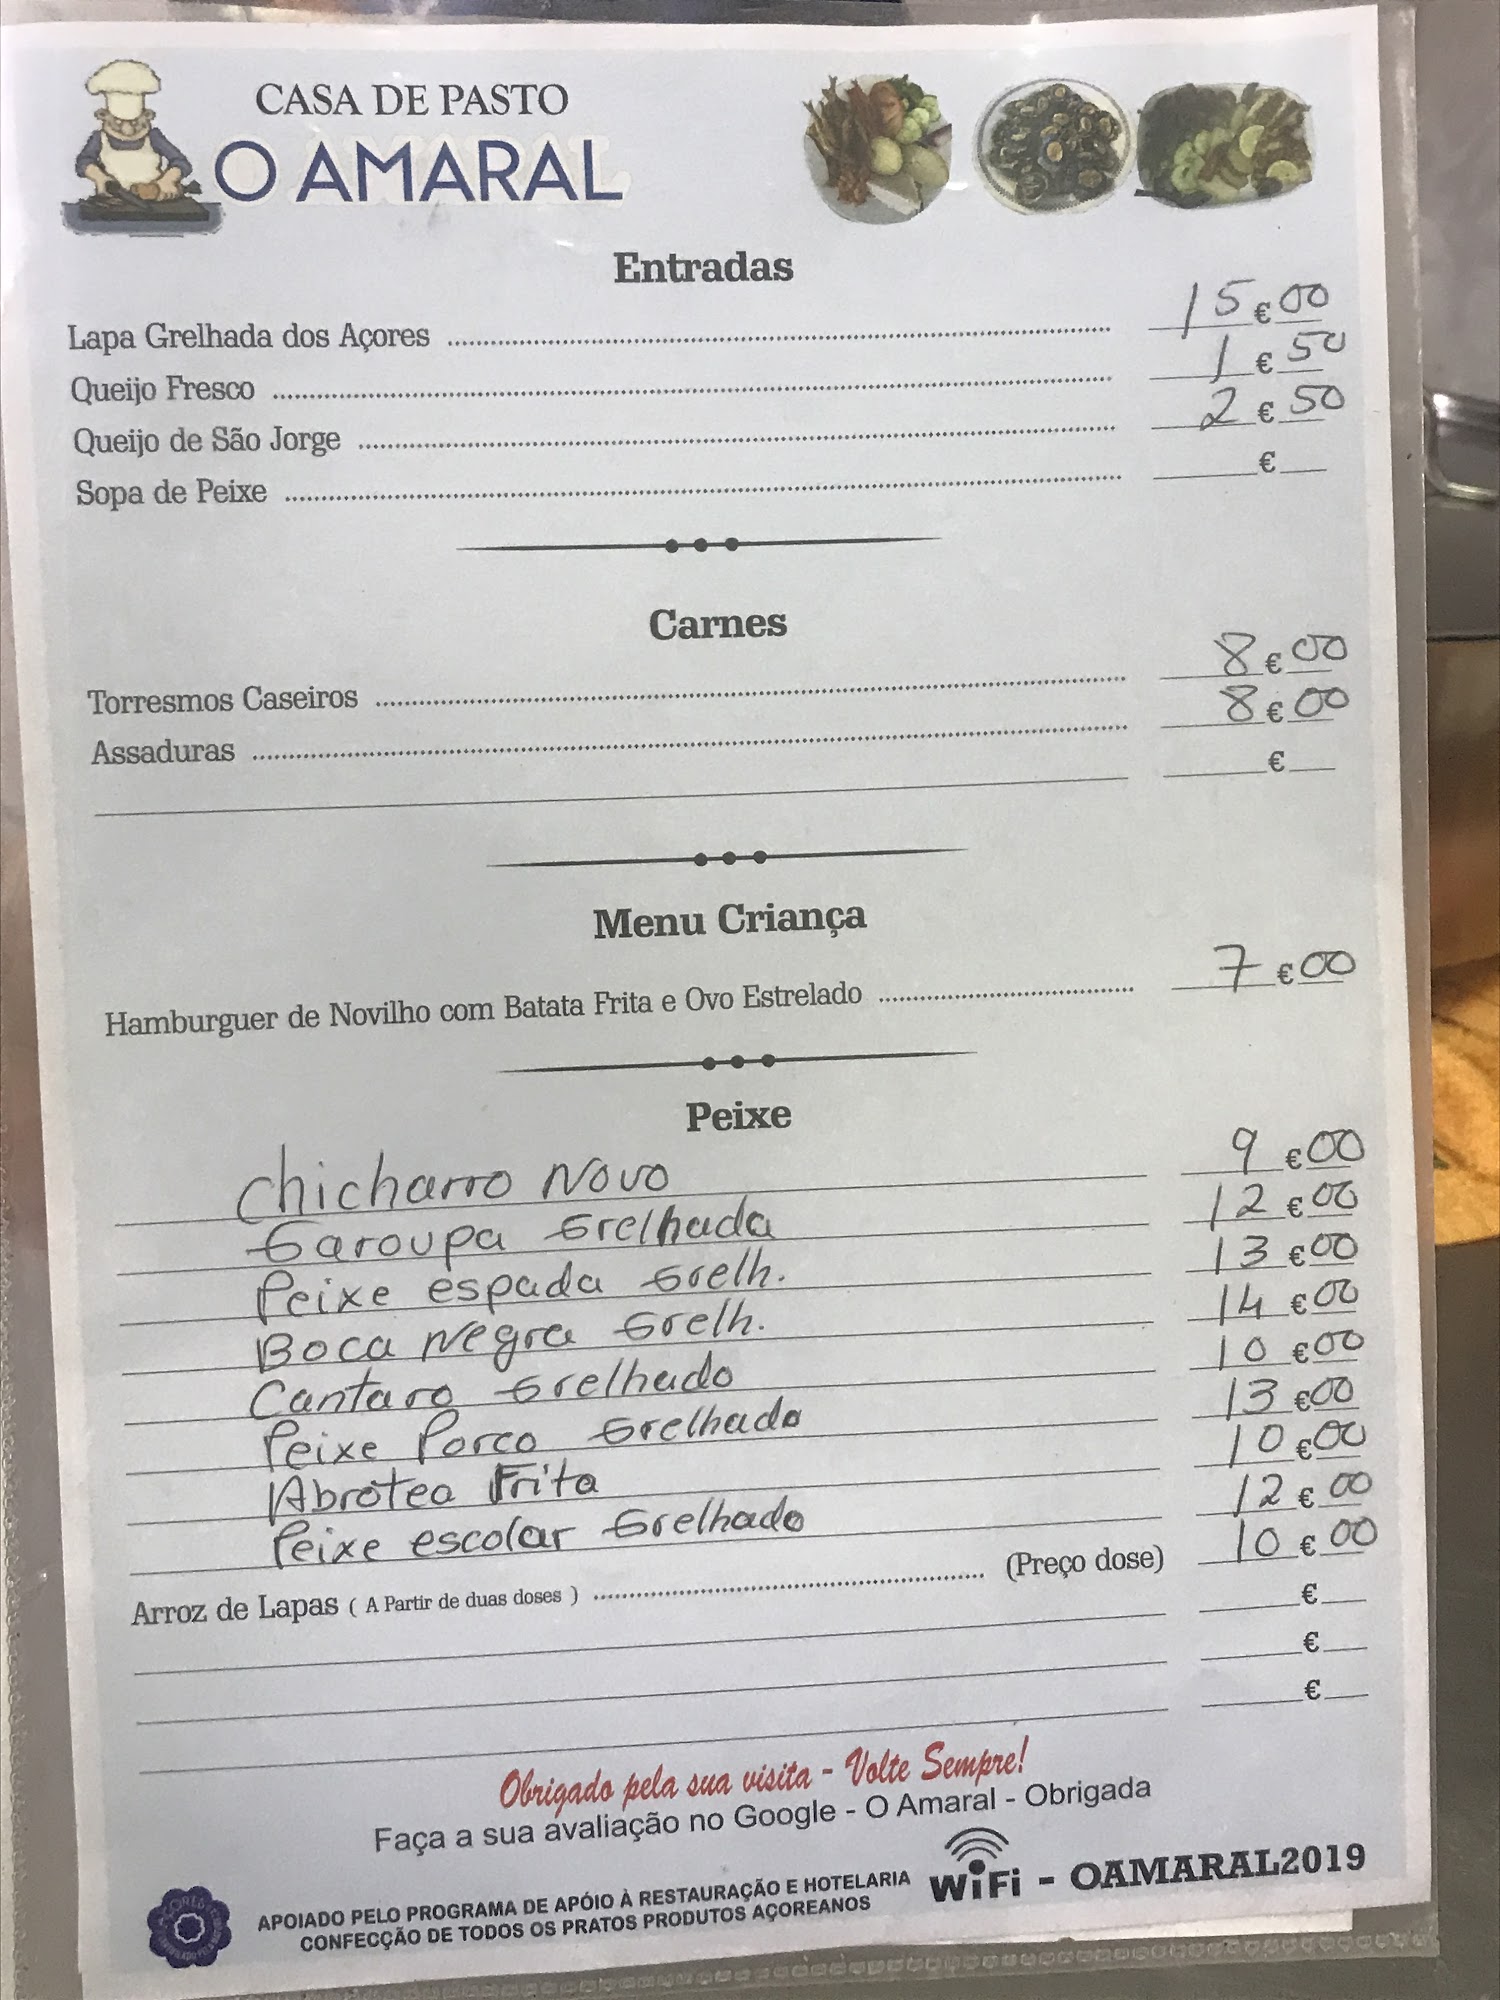 CASA DE PASTO
O AMARAL
Entradas
Lapa Grelhada dos Açores 15 € 00
Queijo Fresco 1 € 50
Queijo de São Jorge 2 € 50
Sopa de Peixe €
Carnes
Torresmos Caseiros 8 € 00
Assaduras 8 € 00
€
Menu Criança
Hamburguer de Novilho com Batata Frita e Ovo Estrelado 7 € 00
Peixe
Chicharro Novo 9 € 00
Garoupa Grelhada 12 € 00
Peixe espada Grelh. 13 € 00
Boca Negra Grelh. 14 € 00
Cantaro Grelhado 10 € 00
Peixe Porco Grelhado 13 € 00
Abrótea Frita 10 € 00
Peixe escolar Grelhado 12 € 00
Arroz de Lapas ( A Partir de duas doses ) (Preço dose) 10 € 00
€
€
€
Obrigado pela sua visita - Volte Sempre!
Faça a sua avaliação no Google - O Amaral - Obrigada
WiFi - OAMARAL2019
APOIADO PELO PROGRAMA DE APÓIO À RESTAURAÇÃO E HOTELARIA
CONFECÇÃO DE TODOS OS PRATOS PRODUTOS AÇOREANOS